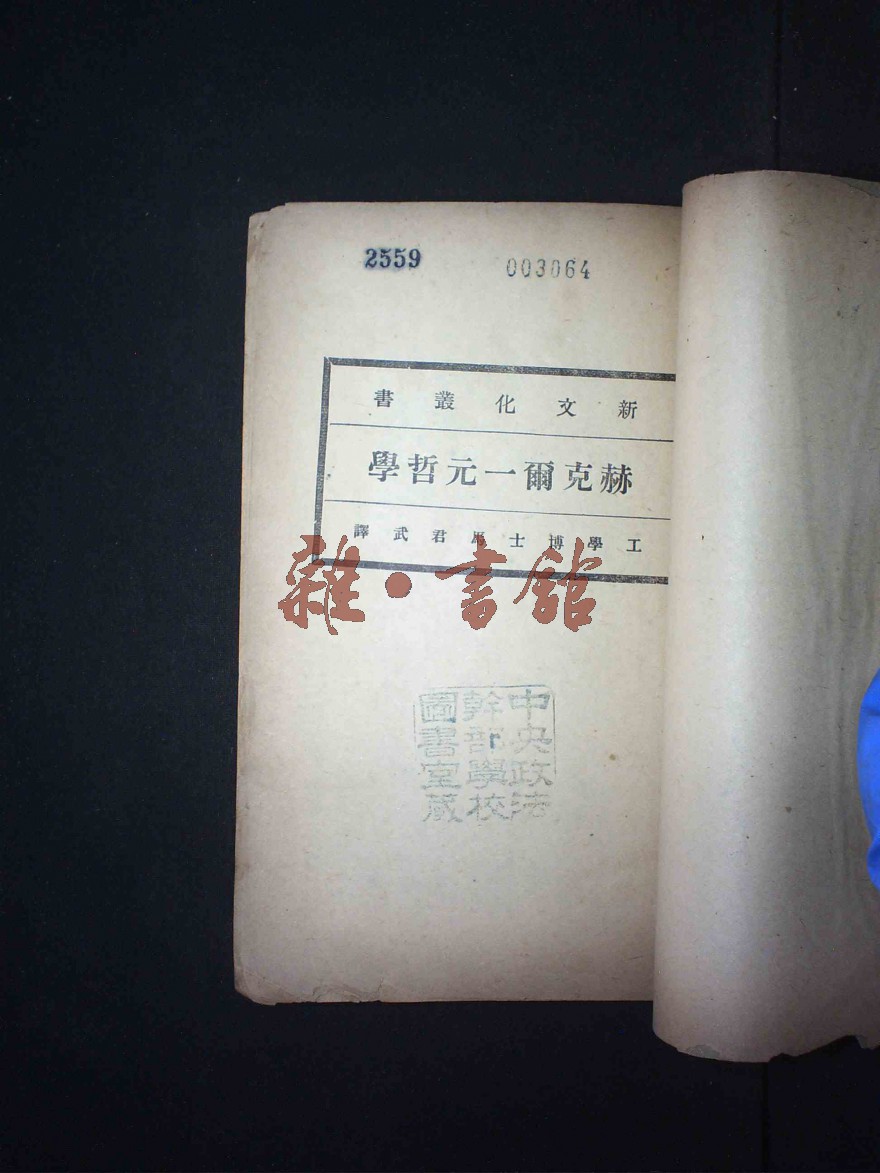 2559
003064
新文化叢書
赫克爾一元哲學
工學博士馬君武譯
雜·書館
中央政法
幹部學校
圖書室藏